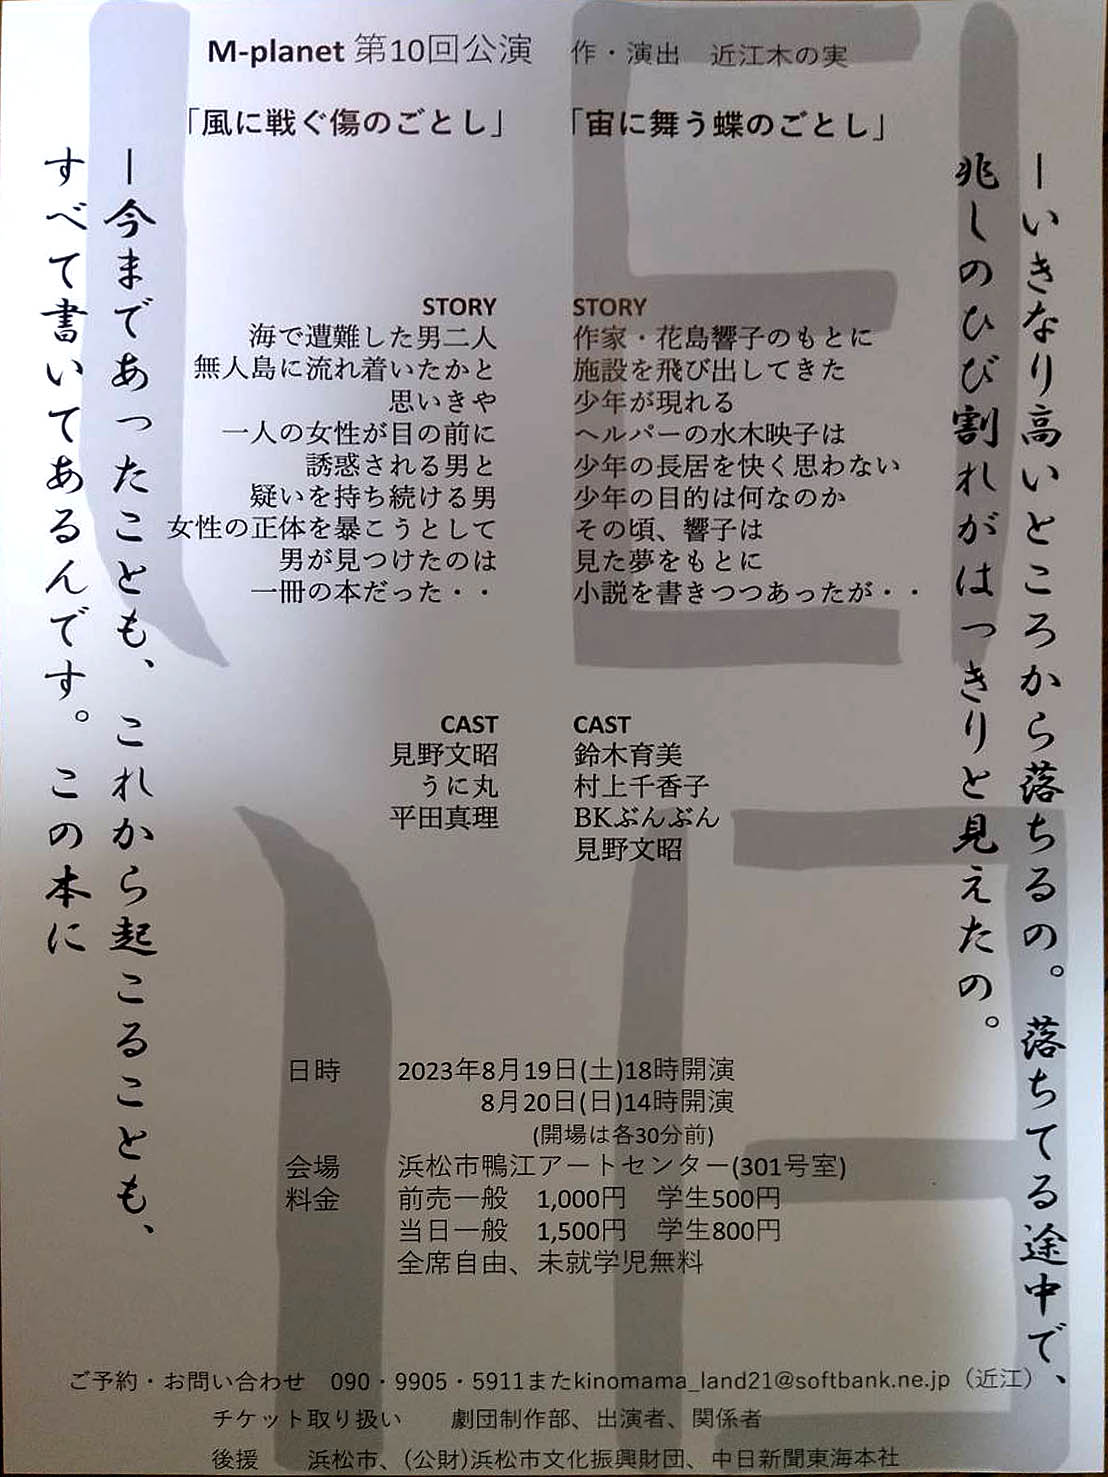 M-planet 第10回公演　作・演出　近江木の実
「風に戦ぐ傷のごとし」
「宙に舞う蝶のごとし」
―いきなり高いところから落ちるの。落ちてる途中で、
兆しのひび割れがはっきりと見えたの。
―今まであったことも、これから起こることも、
すべて書いてあるんです。この本に
STORY
海で遭難した男二人
無人島に流れ着いたかと
思いきや
一人の女性が目の前に
誘惑される男と
疑いを持ち続ける男
女性の正体を暴こうとして
男が見つけたのは
一冊の本だった・・
STORY
作家・花島響子のもとに
施設を飛び出してきた
少年が現れる
ヘルパーの水木映子は
少年の長居を快く思わない
少年の目的は何なのか
その頃、響子は
見た夢をもとに
小説を書きつつあったが・・
CAST
見野文昭
うに丸
平田真理
CAST
鈴木育美
村上千香子
BKぶんぶん
見野文昭
日時　2023年8月19日(土)18時開演
8月20日(日)14時開演
(開場は各30分前)
会場　浜松市鴨江アートセンター(301号室)
料金　前売一般　1,000円　学生500円
当日一般　1,500円　学生800円
全席自由、未就学児無料
ご予約・お問い合わせ　090・9905・5911またkinomama_land21@softbank.ne.jp（近江）
チケット取り扱い　劇団制作部、出演者、関係者
後援　浜松市、(公財)浜松市文化振興財団、中日新聞東海本社